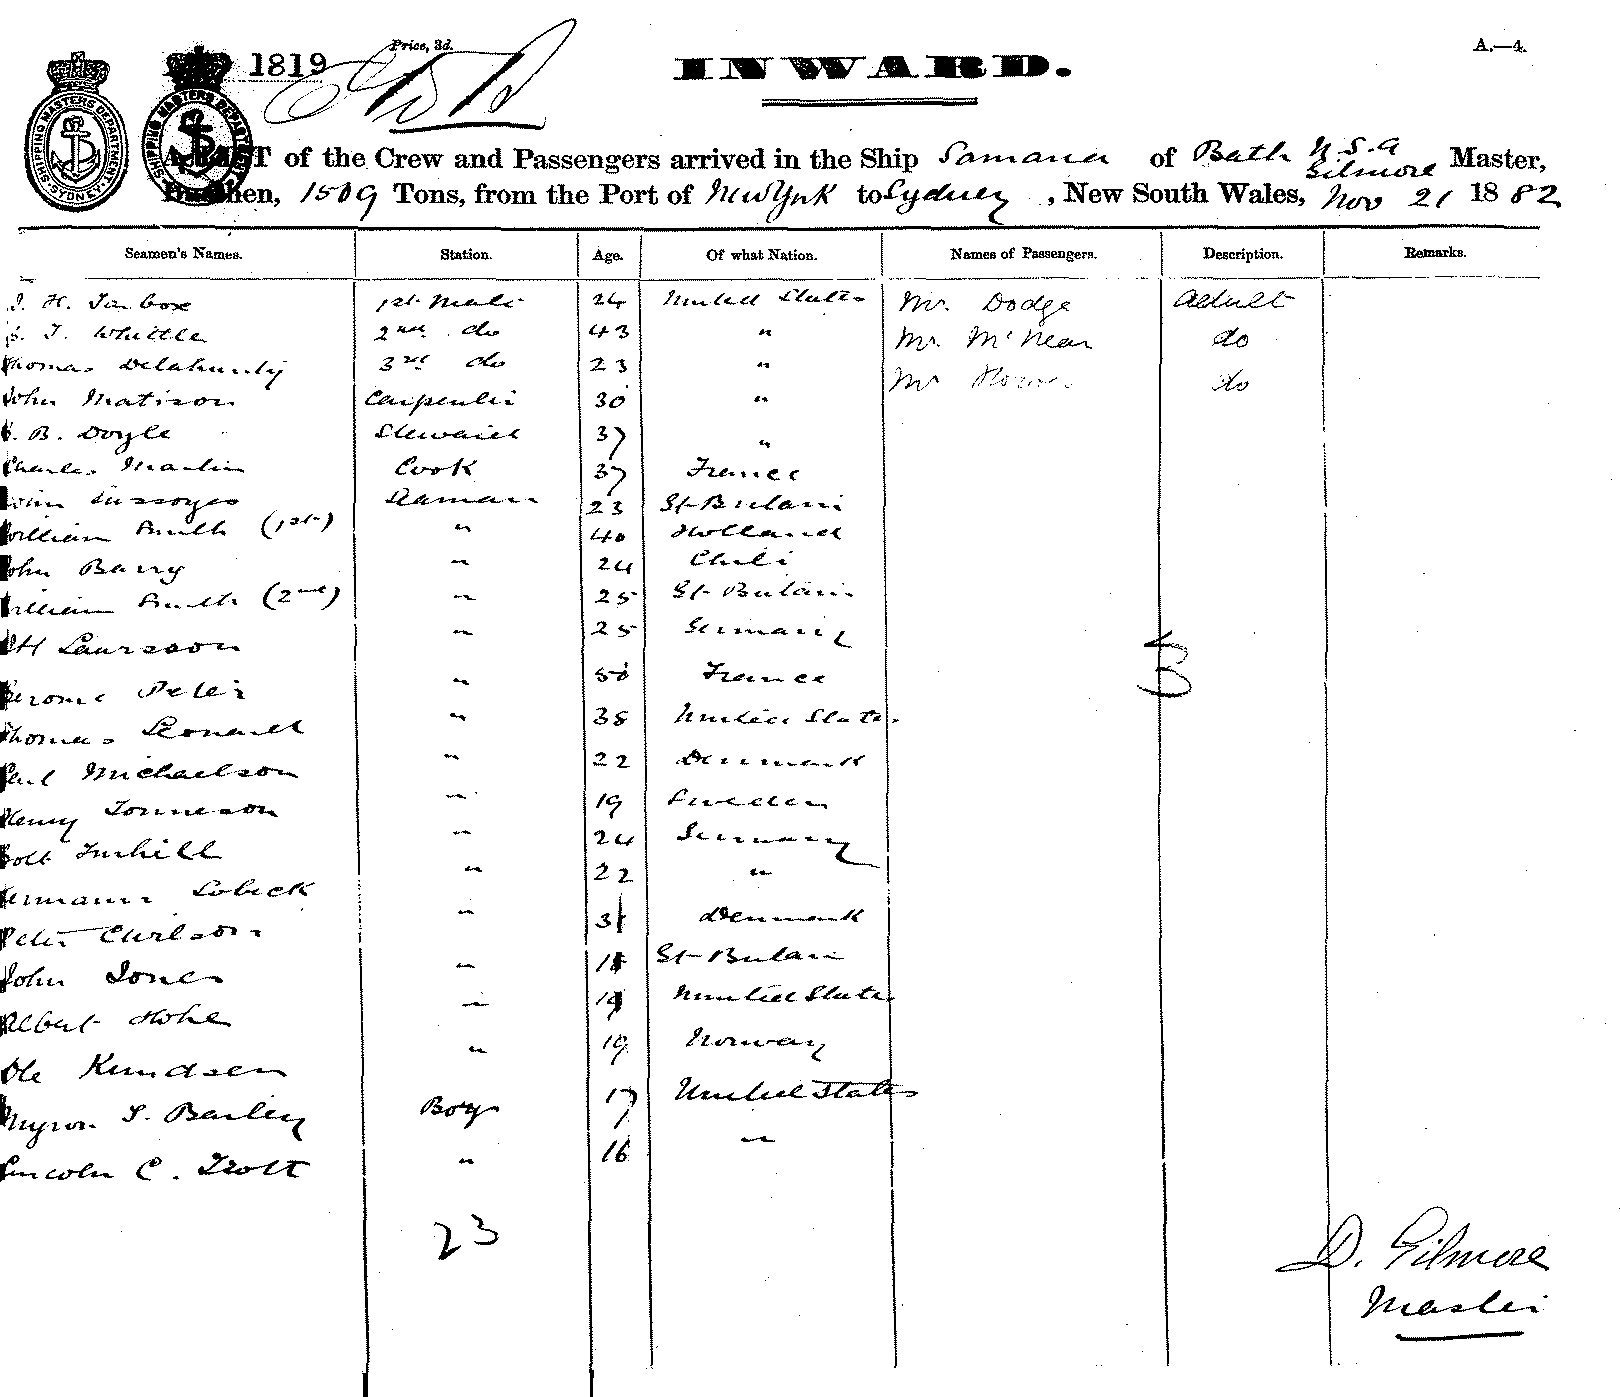 1819
Price, 3d.
INWARD.
A.—4.
A LIST of the Crew and Passengers arrived in the Ship Samaria of Bath U.S.A Gilmore Master,
Burthen, 1509 Tons, from the Port of New York to Sydney, New South Wales, Nov 21 1882
Seamen's Names. Station. Age. Of what Nation. Names of Passengers. Description. Remarks.
J. H. Tarbox 1st Mate 24 United States Mr. Dodge Adult
S. T. Whittle 2nd do 43 " Mr. McNear do
Thomas Delahunty 3rd do 23 " Mr do
John Matison Carpenter 30 "
B. Doyle Steward 37 "
Charles Martin Cook 37 France
John Seaman 23 Gt Britain
William Smith (1st) " 40 Holland
John Barry " 24 Chili
William Smith (2nd) " 25 Gt Britain
H Laursson " 25 Germany
Jerome Peter " 50 France
Thomas Leonard " 38 United States
Michaelson " 22 Denmark
Henry Tonneson " 19 Sweden
" 24 Germany
Hermann Lobeck " 22 "
Peter " 31 Denmark
John Jones " Gt Britain
Albert Hohl " 19 United States
Ole Knudsen " 19 Norway
Myron S. Bailey Boy 17 United States
Lincoln C. Trott " 16 "
3
23
D. Gilmore
Master